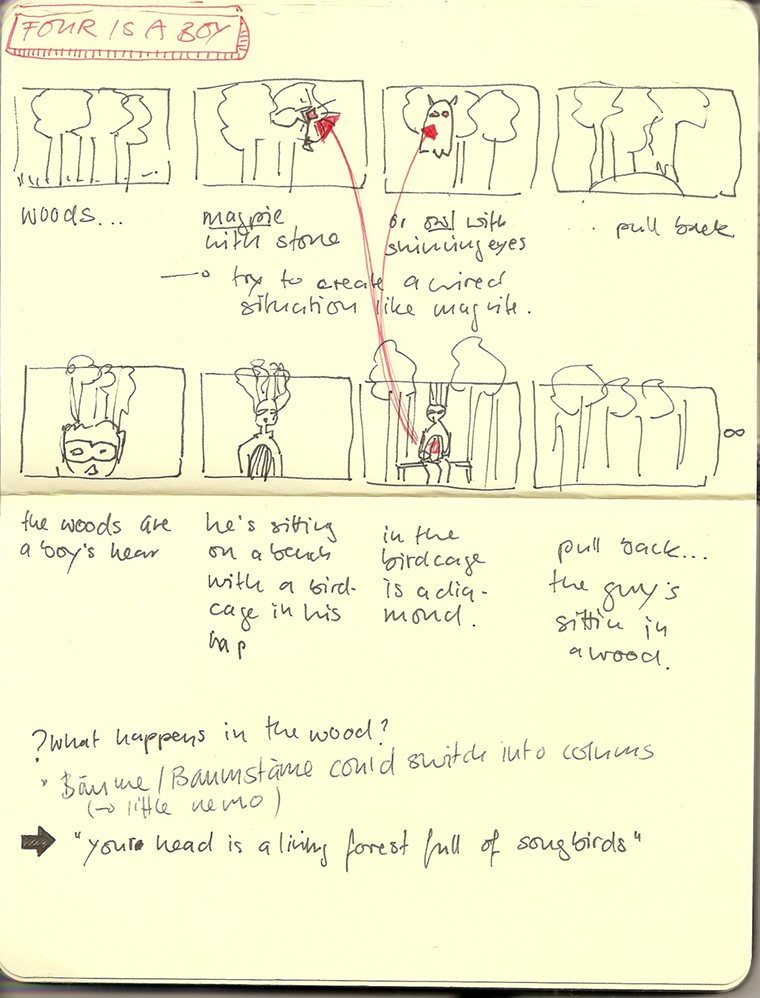 FOUR IS A BOY
woods...
magpie
with stone
or owl with
shinning eyes
... pull back
→ try to create a wired
situation like magritte.
∞
the woods are
a boy's hear
he's sitting
on a bench
with a bird-
cage in his
lap
in the
birdcage
is a dia-
mond.
pull back...
the guy's
sittin in
a wood.
? what happens in the wood?
* Bäume/Baumstäme could switch into colums
(→ little nemo)
➡ "your head is a living forest full of songbirds"